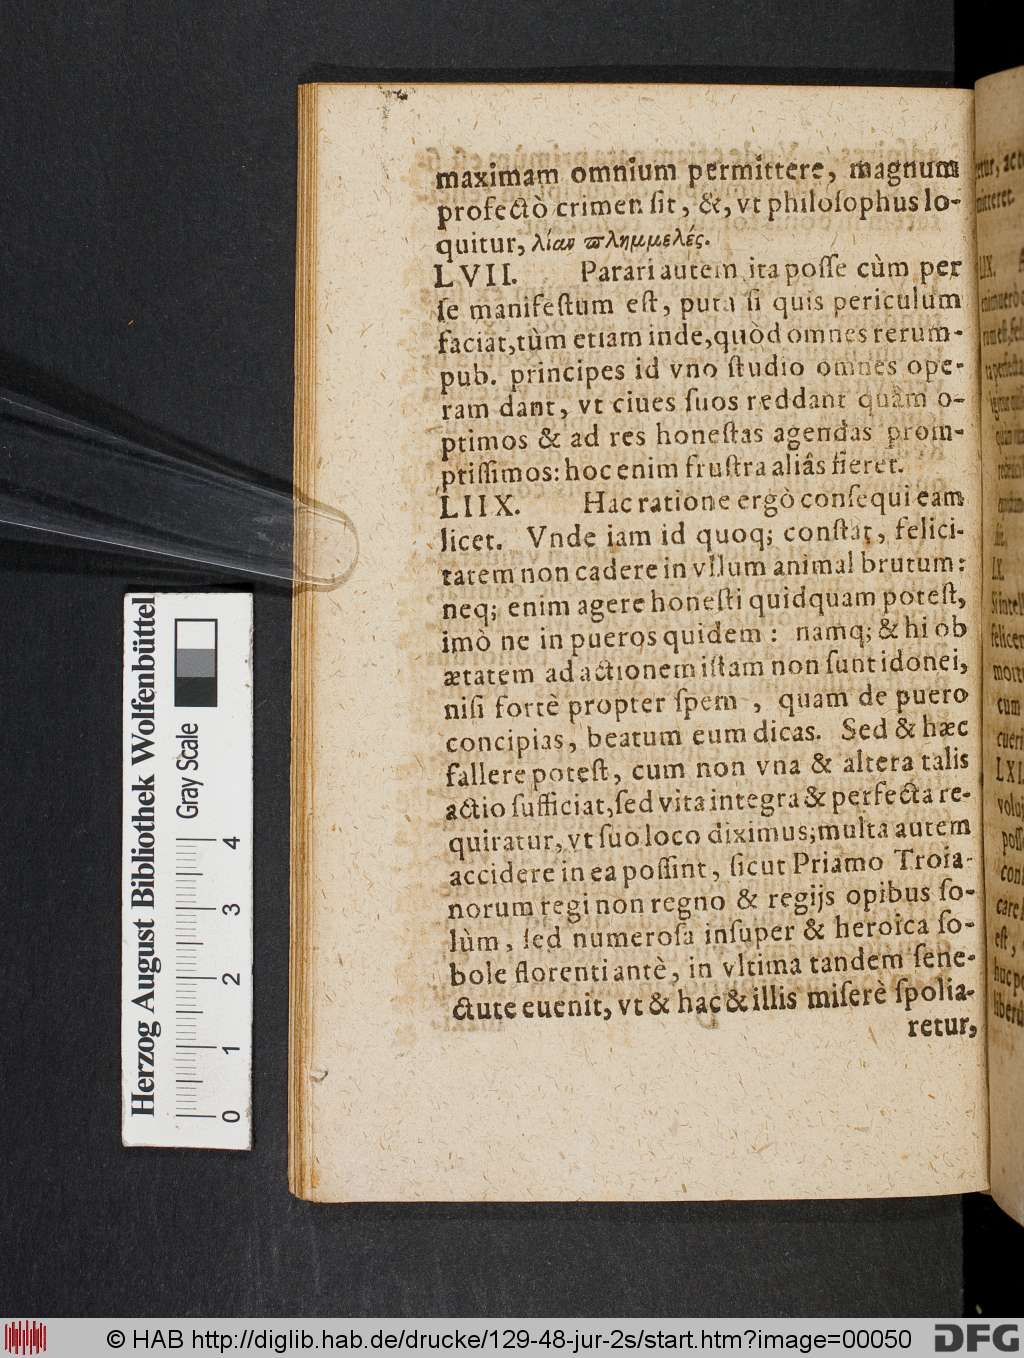 maximam omnium permittere, magnum
profectò crimen ſit, &, vt philoſophus lo-
quitur, λίαν πλημμελές.
LVII. Parari autem ita poſſe cùm per
ſe manifeſtum eſt, puta ſi quis periculum
faciat, tùm etiam inde, quòd omnes rerum-
pub. principes id vno ſtudio omnes ope-
ram dant, vt ciues ſuos reddant quàm o-
ptimos & ad res honeſtas agendas prom-
ptiſſimos: hoc enim fruſtra aliâs fieret.
LIIX. Hac ratione ergò conſequi eam
licet. Vnde iam id quoq; conſtat, felici-
tatem non cadere in vllum animal brutum:
neq; enim agere honeſti quidquam poteſt,
imò ne in pueros quidem: namq; & hi ob
ætatem ad actionem iſtam non ſunt idonei,
niſi fortè propter ſpem, quam de puero
concipias, beatum eum dicas. Sed & hæc
fallere poteſt, cum non vna & altera talis
actio ſufficiat, ſed vita integra & perfecta re-
quiratur, vt ſuo loco diximus; multa autem
accidere in ea poſſint, ſicut Priamo Troia-
norum regi non regno & regijs opibus ſo-
lùm, ſed numeroſa inſuper & heroica ſo-
bole florenti antè, in vltima tandem ſene-
ctute euenit, vt & hac & illis miſerè ſpolia-
retur,
Herzog August Bibliothek Wolfenbüttel
Gray Scale
0 1 2 3 4
© HAB http://diglib.hab.de/drucke/129-48-jur-2s/start.htm?image=00050
DFG